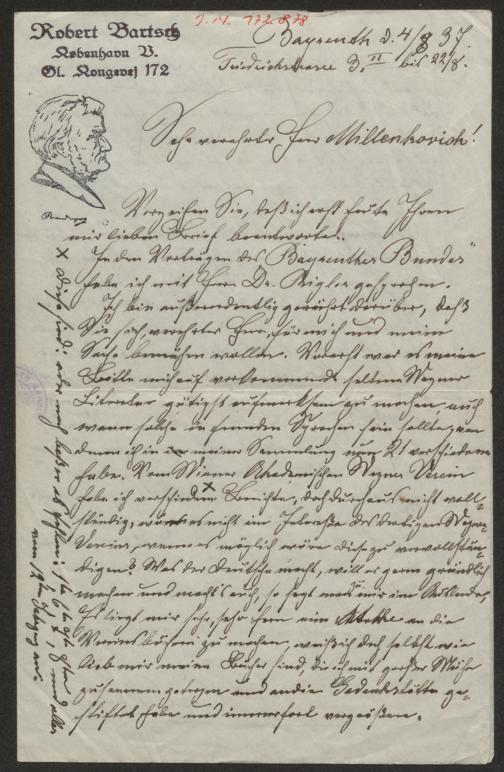 J.N. 172878
Robert Bartsch
København V.
Gl. Kongevej 172
Bayreuth d. 4/8 37.
Friedrichstrasse 3, II bis 22/8.
Sehr verehrter Herr Millenkovich!
Verzeihen Sie, daß ich erst heute Ihren
mir lieben Brief beantworte.
In den Vorträgen des "Bayreuther Bundes"
habe ich mit Herrn Dr. Rigler gesprochen.
Ich bin außerordentlich gerührt darüber, daß
Sie sich verehrter Herr, für mich und meine
Sache bemühen wollen. Vorerst war es meine
Bitte mich auf vorkommende seltene Wagner
Literatur gütigst aufmerksam zu machen, auch
wenn solche in fremden Sprachen sein sollte, von
denen ich in meiner Sammlung nun 21 verschiedene
habe. Vom Wiener Akademischen Wagner Verein
habe ich verschiedene x Berichte, doch durchaus nicht voll-
ständig, wäre es nicht im Interesse des dortigen Wagner
Vereins, wenn es möglich wäre diese zu vervollstän-
digen? Was der Deutsche macht, will er gern gründlich
machen und macht's auch, so sagt man mir im Auslande.
Es liegt mir sehr, sehr fern eine Attacke an die
Vereinsbücher zu machen, weiß ich doch selbst wie
lieb mir meine Bücher sind, die ich mit großer Mühe
zusammen getragen und an die Gedenkstätte ge-
stiftet habe und immerfort vergrößere.
x Diese sind: oder
vom 19ten Jahrgang an.